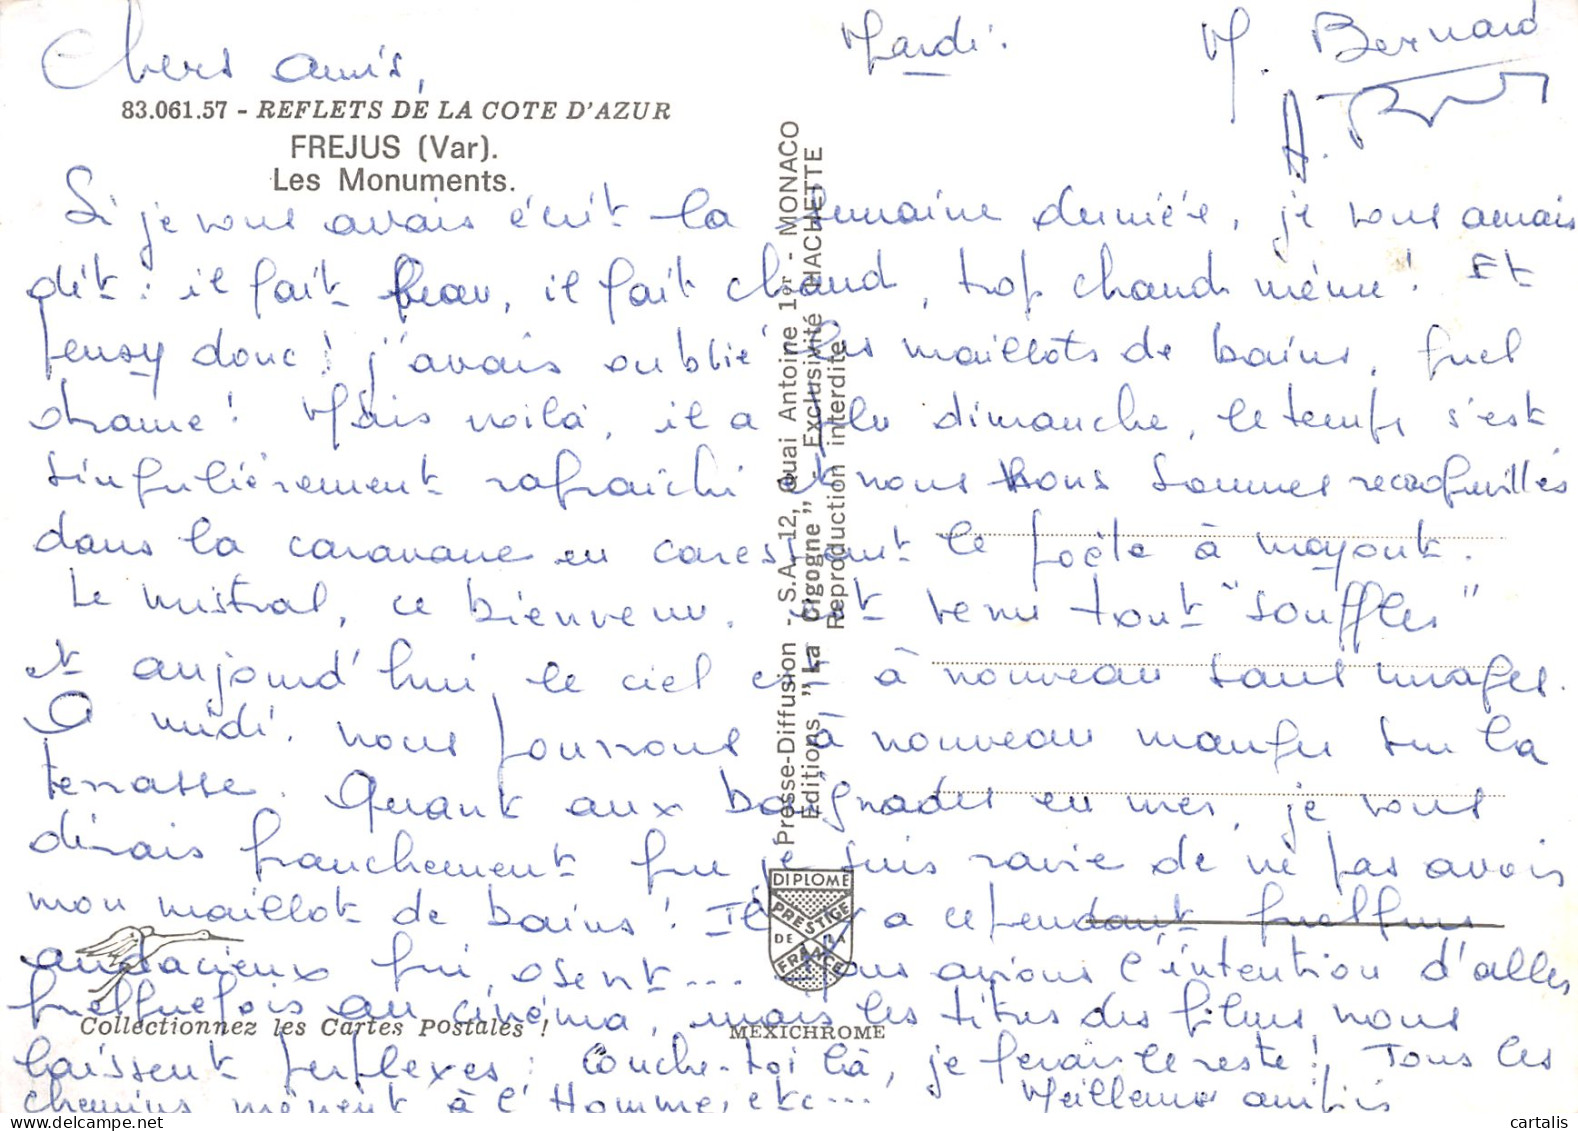 Mardi.
M. Bernard
Chers amis,
83.061.57 - REFLETS DE LA COTE D'AZUR
FREJUS (Var).
Les Monuments.
Si je vous avais écrit la semaine dernière, je vous aurais
dit : il fait beau, il fait chaud, trop chaud même ! Et
pensez donc ! j'avais oublié les maillots de bains, quel
drame ! Mais voilà, il a plu dimanche, le temps s'est
singulièrement rafraîchi et nous nous sommes recroquevillés
dans la caravane en caressant le poêle à mazout.
Le mistral, ce bienvenu, est venu tout "souffler"
et aujourd'hui le ciel est à nouveau sans nuages.
A midi, nous pourrons à nouveau manger sur la
terrasse. Quant aux baignades en mer, je vous
dirais franchement que je suis ravie de ne pas avoir
mon maillot de bains ! Il y a cependant quelques
audacieux qui osent... Nous avions l'intention d'aller
quelquefois au cinéma, mais les titres des films nous
laissent perplexes : Couche-toi là, je ferai le reste !, Tous les
chemins mènent à l'Homme, etc...
Meilleures amitiés
Presse-Diffusion - S.A. 12, Quai Antoine 1er - MONACO
Editions "La Cigogne" - Exclusivité HACHETTE
Reproduction interdite
DIPLOME
PRESTIGE
DE LA
FRANCE
Collectionnez les Cartes Postales !
MEXICHROME
cartalis